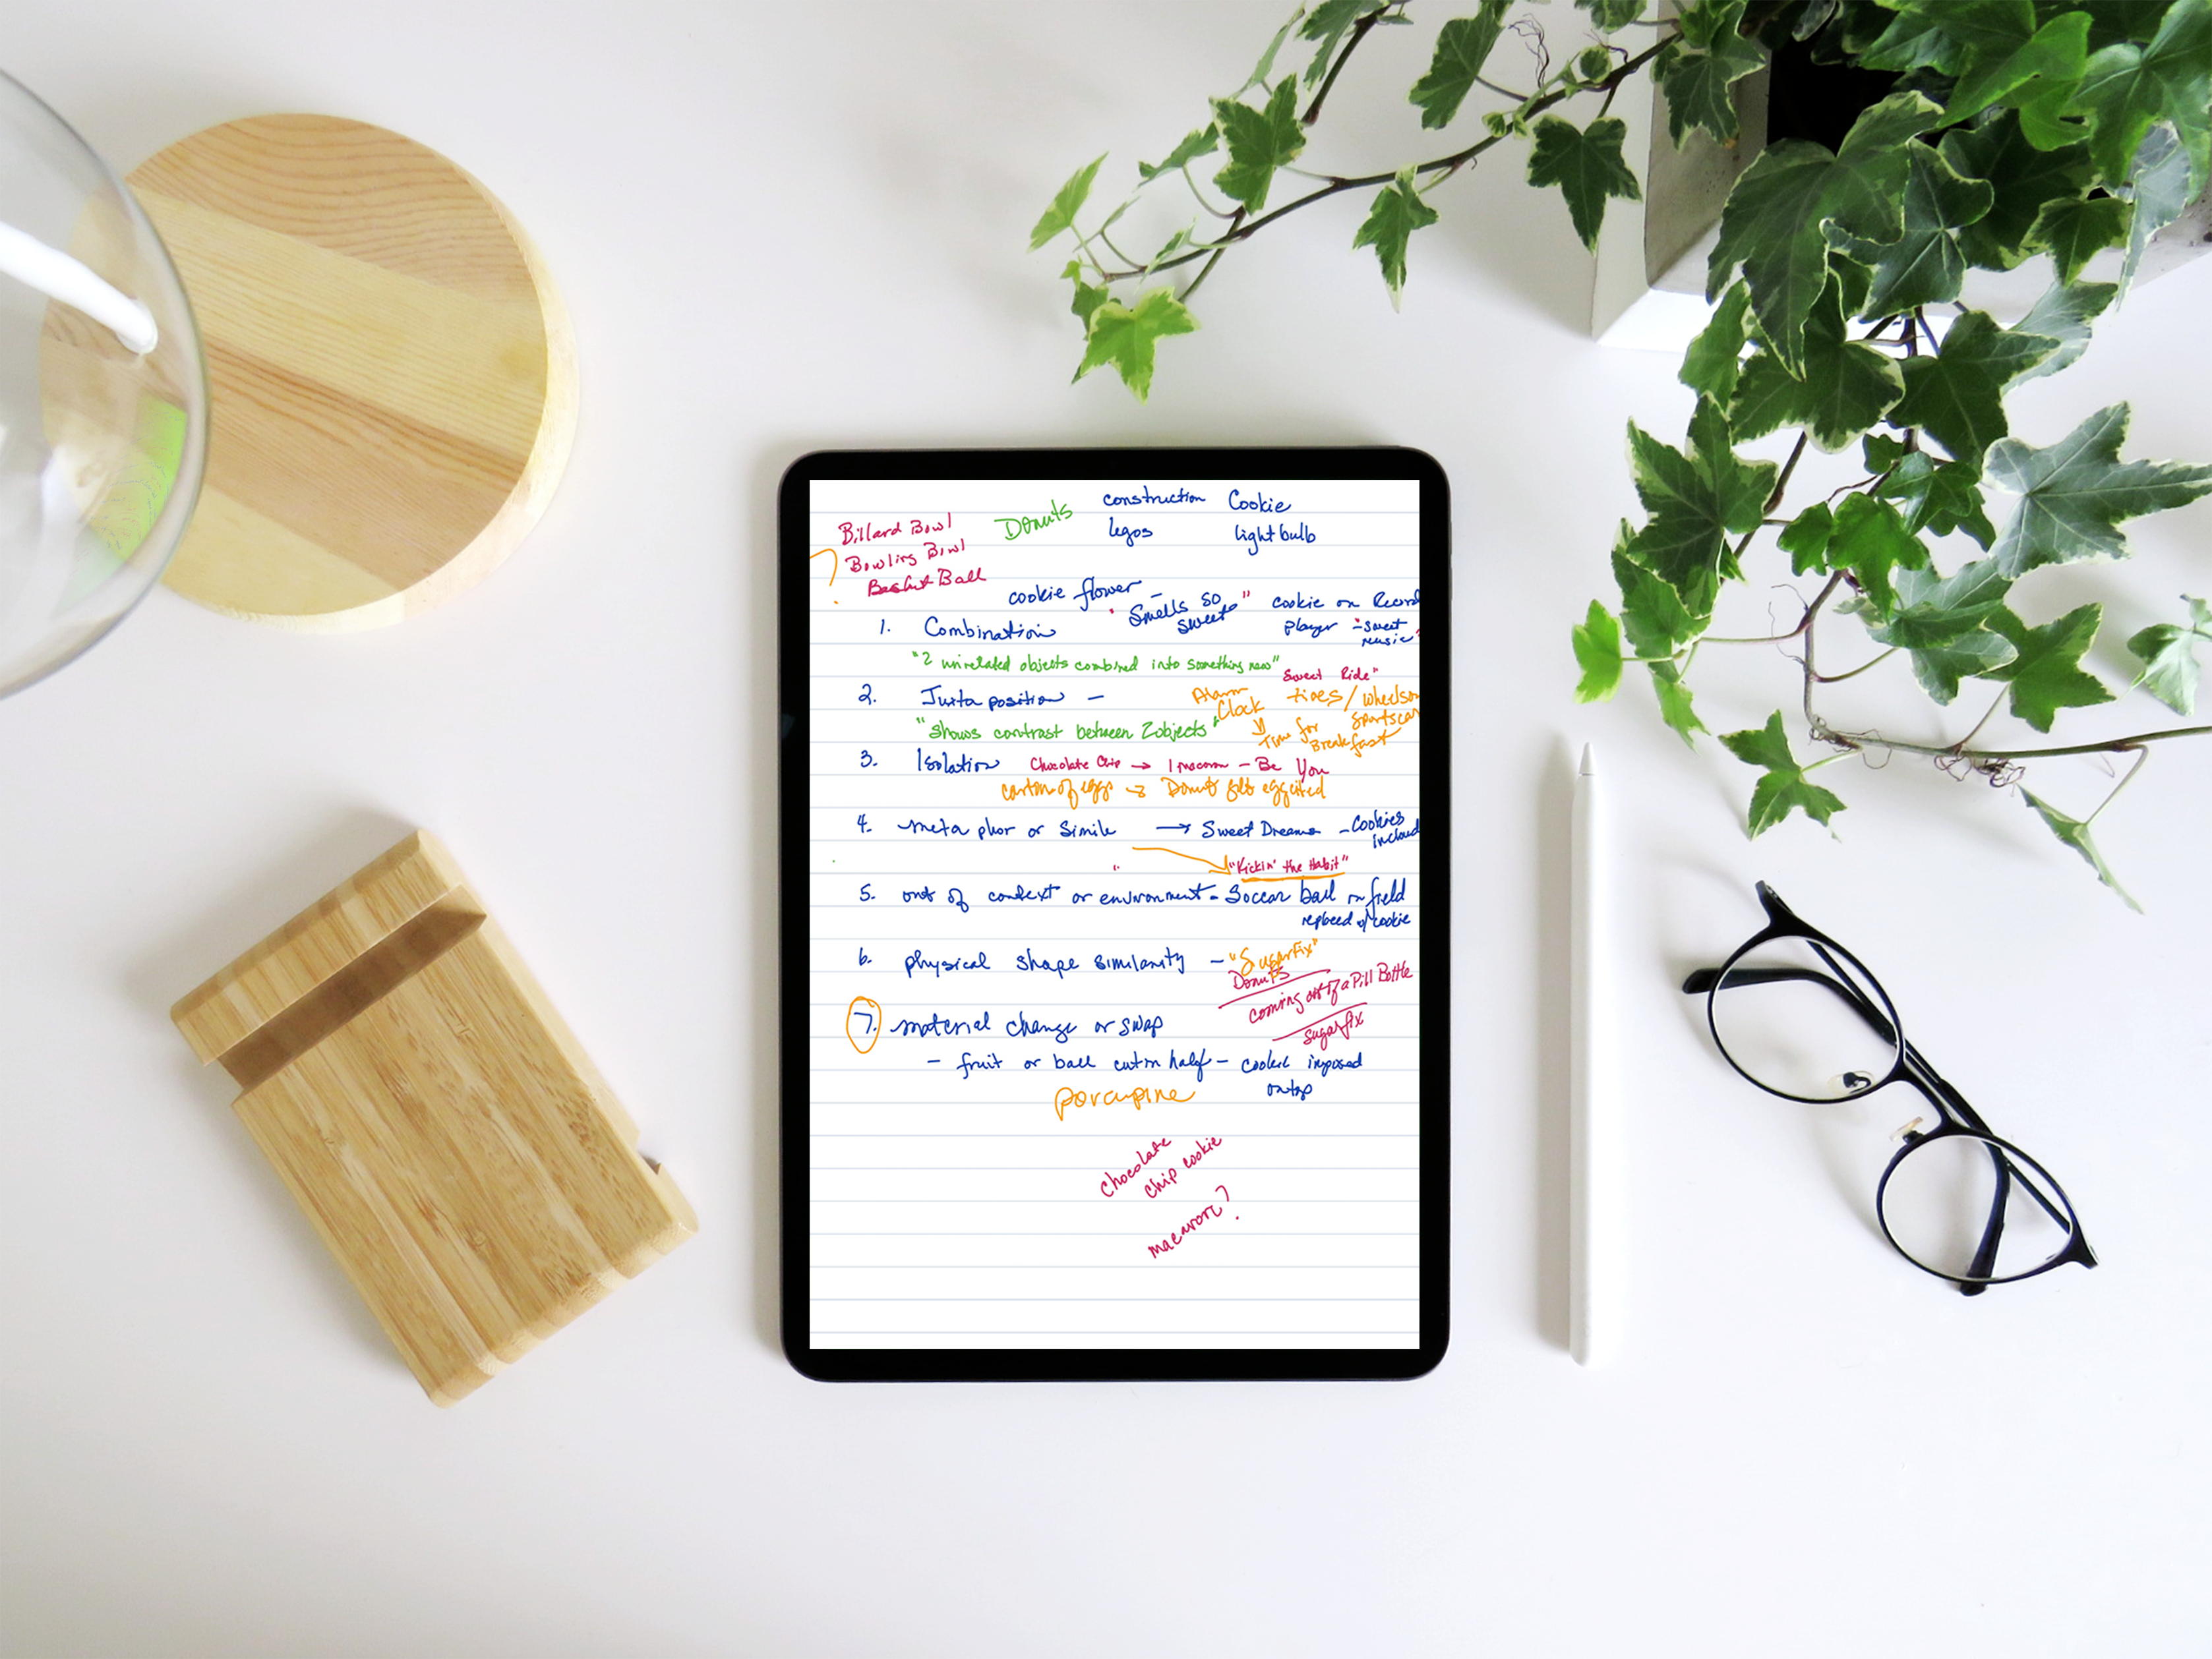 construction Cookie
Donuts
legos lightbulb
Billard Bowl
Bowling Bowl
Basket Ball
?
cookie flower -
"Smells so sweet"
cookie on Record
player - "sweet
music"
1. Combination
"2 unrelated objects combined into something new"
"Sweet Ride"
2. Juxtaposition -
Alarm
Clock
tires / wheels on
sportscar
Time for
Breakfast
"shows contrast between 2 objects"
3. Isolation Chocolate Chip → 1 macaron - Be You
carton of eggs → Donut gets eggcited
4. metaphor or simile → Sweet Dreams - Cookies
"Kickin' the Habit"
5. out of context or environment - Soccer ball on field
replaced w/ cookie
6. physical shape similarity - "Sugarfix"
Donuts
coming out of a Pill Bottle
sugarfix
7. material change or swap
- fruit or ball cut in half - cookie imposed
on top
porcupine
chocolate
chip cookie
macaron?